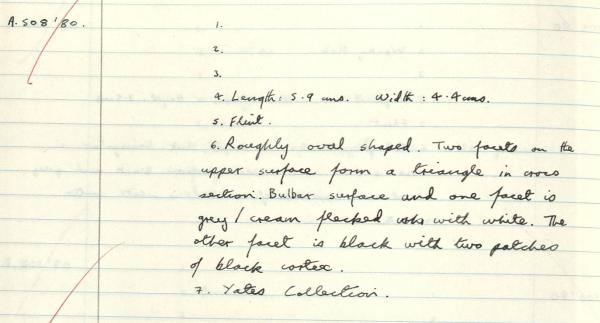 A.508'80. 1.
2.
3.
4. Length: 5.9 cms. Width: 4.4 cms.
5. Flint.
6. Roughly oval shaped. Two facets on the
upper surface form a triangle in cross
section. Bulbar surface and one facet is
grey/cream flecked with white. The
other facet is black with two patches
of black cortex.
7. Yates Collection.